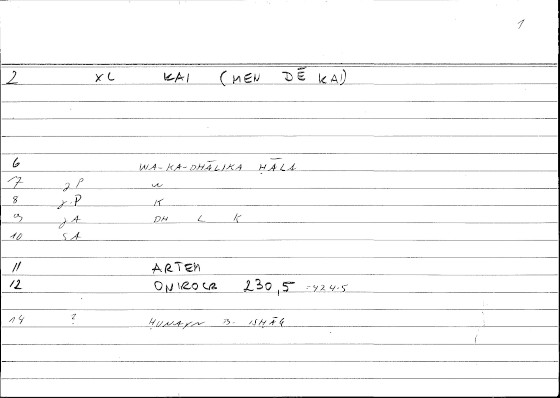 1
2 XL KAI (MEN DĒ KAI)
6 WA-KA-DHĀLIKA ḤĀLA
7 gP W
8 gP K
9 gA DH L K
10 SA
11 ARTEM
12 ONIROCR 230,5 =424.5
14 ? ḤUNAYN B. ISḤĀQ